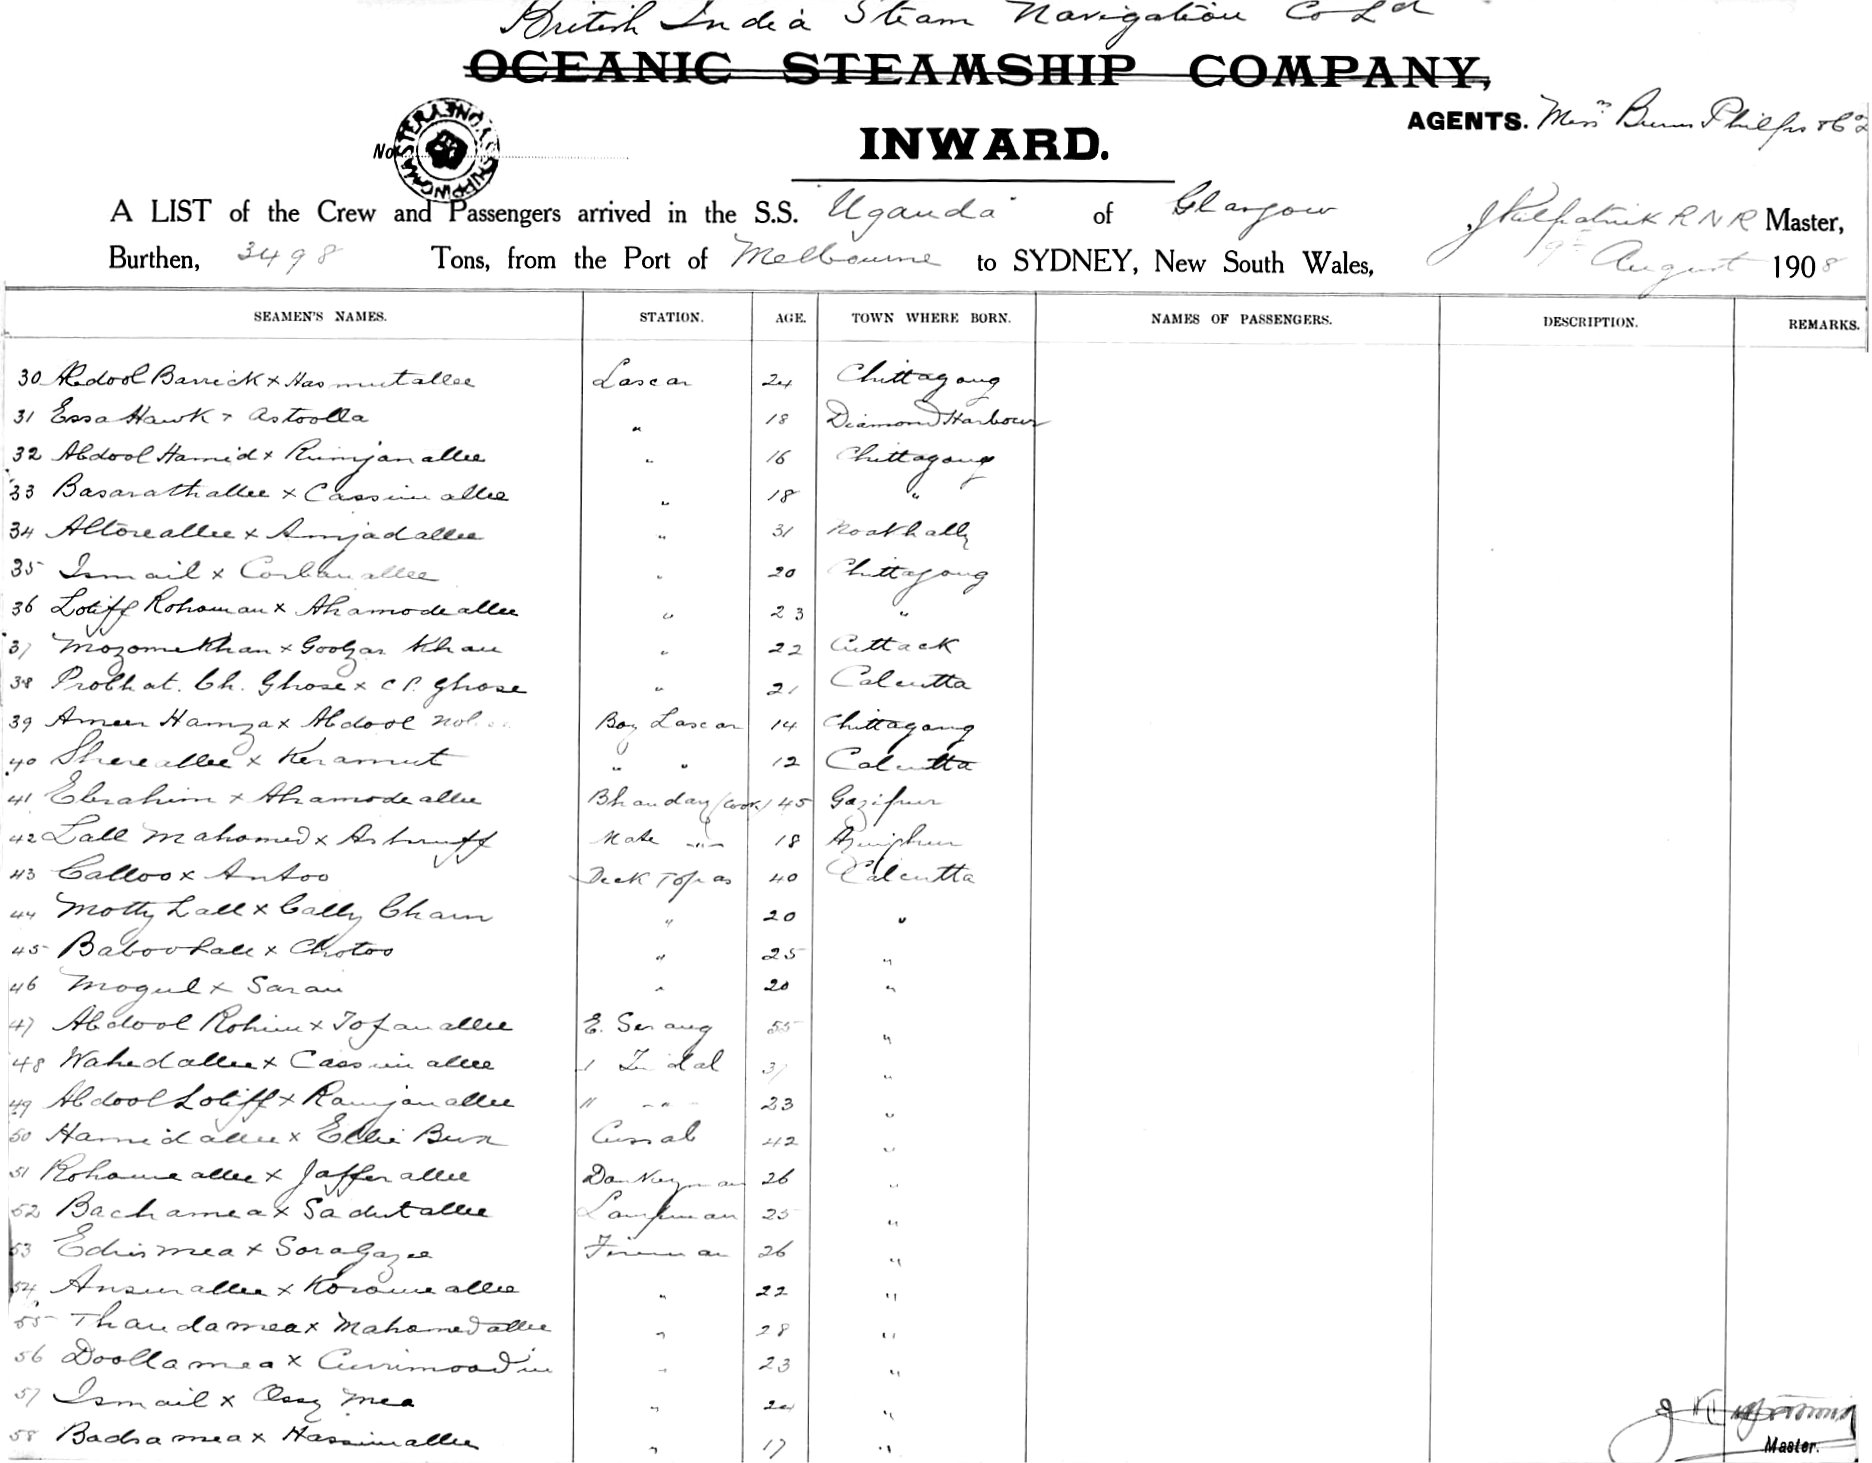 British India Steam Navigation Co Ld
OCEANIC STEAMSHIP COMPANY,
AGENTS. Messrs Burns Philp & Co
No.
SHIPPING MASTER SYDNEY
INWARD.
A LIST of the Crew and Passengers arrived in the S.S. "Uganda" of Glasgow J Kilpatrick R N R Master,
Burthen, 3498 Tons, from the Port of Melbourne to SYDNEY, New South Wales, 9th August 1908
SEAMEN'S NAMES. STATION. AGE. TOWN WHERE BORN. NAMES OF PASSENGERS. DESCRIPTION. REMARKS.
30 Abdool Barrick x Hasmutallee Lascar 24 Chittagong
31 Essa Hawk x Astoolla " 18 Diamond Harbour
32 Abdool Hamid x Rumjanallee " 16 Chittagong
33 Basarathallee x Cassimallee " 18 "
34 Altoreallee x Amjadallee " 31 Noakhally
35 Ismail x Corbanallee " 20 Chittagong
36 Lotiff Rohoman x Ahamodeallee " 23 "
37 Mozomekhan x Goolzar Khan " 22 Cuttack
38 Probhat. Ch. Ghose x C P. Ghose " 21 Calcutta
39 Ameer Hamza x Abdool Boy Lascar 14 Chittagong
40 Shereallee x Keramut " " 12 Calcutta
41 Ebrahim x Ahamodeallee Bhandary (Cook) 45 Gazipur
42 Lall Mahomed x Ashruff Mate " 18
43 Calloo x Antoo Deck Topas 40 Calcutta
44 Motty Lall x Cally Churn " 20 "
45 Baboolall x Chotoo " 25 "
46 Mogul x Saran " 20 "
47 Abdool Rohim x Tofanallee E. Serang 55 "
48 Wahedallee x Cassimallee 1 Tindal 31 "
49 Abdool Lotiff x Ramjanallee " " 23 "
50 Hamidallee x Ellie Bux Cussab 42 "
51 Rohomeallee x Jafferallee Donkeyman 26 "
52 Bachamea x Sadutallee Lampman 25 "
53 Edrismea x Soragazee Fireman 26 "
54 Ansurallee x Koromeallee " 22 "
55 Thandamea x Mahomedallee " 28 "
56 Doollamea x Currimoodin " 23 "
57 Ismail x Ossy Mea " 24 "
58 Badsamea x Hassimallee " 17 "
Master.